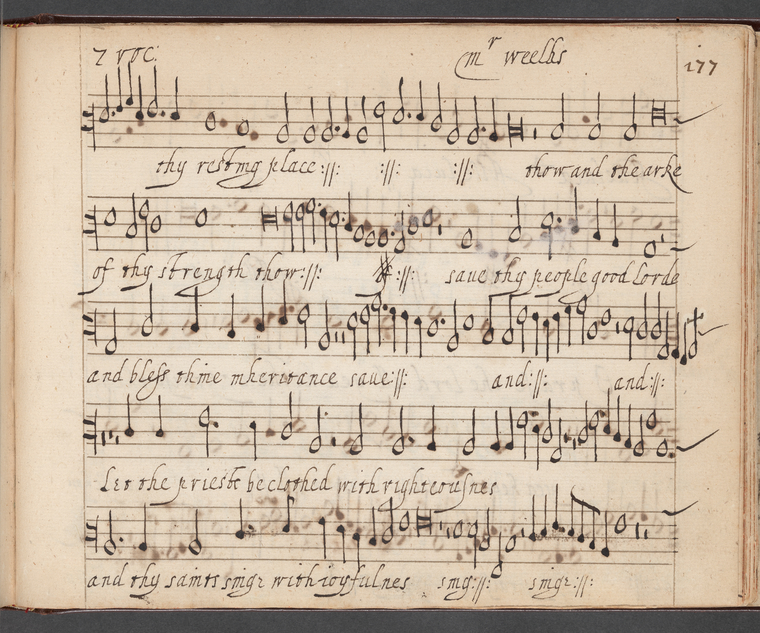 7 voc: mr weelks 177
thy resting place :||: :||: :||: thow and the arke
of thy strength thow :||: :||: saue thy people good Lorde
and bless thine inheritance saue :||: and :||: and :||:
Let the prieste be clothed with righteousnes
and thy saints singe with ioyfulnes sing :||: singe :||: